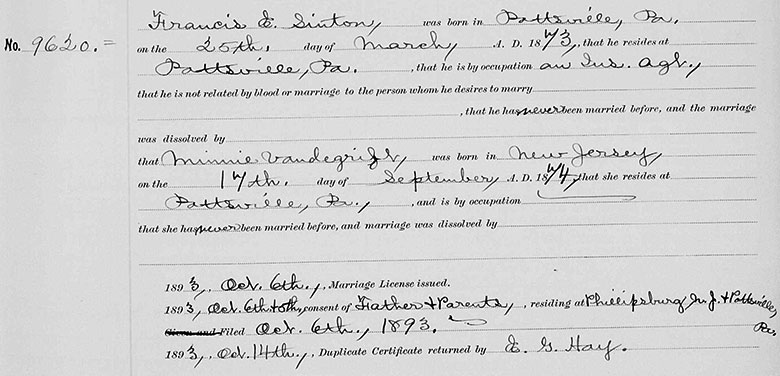 Francis E. Sinton, was born in Pottsville, Pa.
No. 9620.= on the 25th, day of March, A. D. 1873, that he resides at
Pottsville, Pa. , that he is by occupation an Ins. Agt.,
that he is not related by blood or marriage to the person whom he desires to marry
, that he has never been married before, and the marriage
was dissolved by
that Minnie Vandegrift, was born in New Jersey,
on the 17th. day of September, A. D. 1874, that she resides at
Pottsville, Pa., , and is by occupation
that she has never been married before, and marriage was dissolved by
1893, Oct. 6th., Marriage License issued.
1893, Oct. 6th + , consent of Father + Parents, , residing at Phillipsburg N. J. + Pottsville,
Given and Filed Oct. 6th., 1893. Pa.
1893, Oct. 14th., , Duplicate Certificate returned by E. G. Hay.